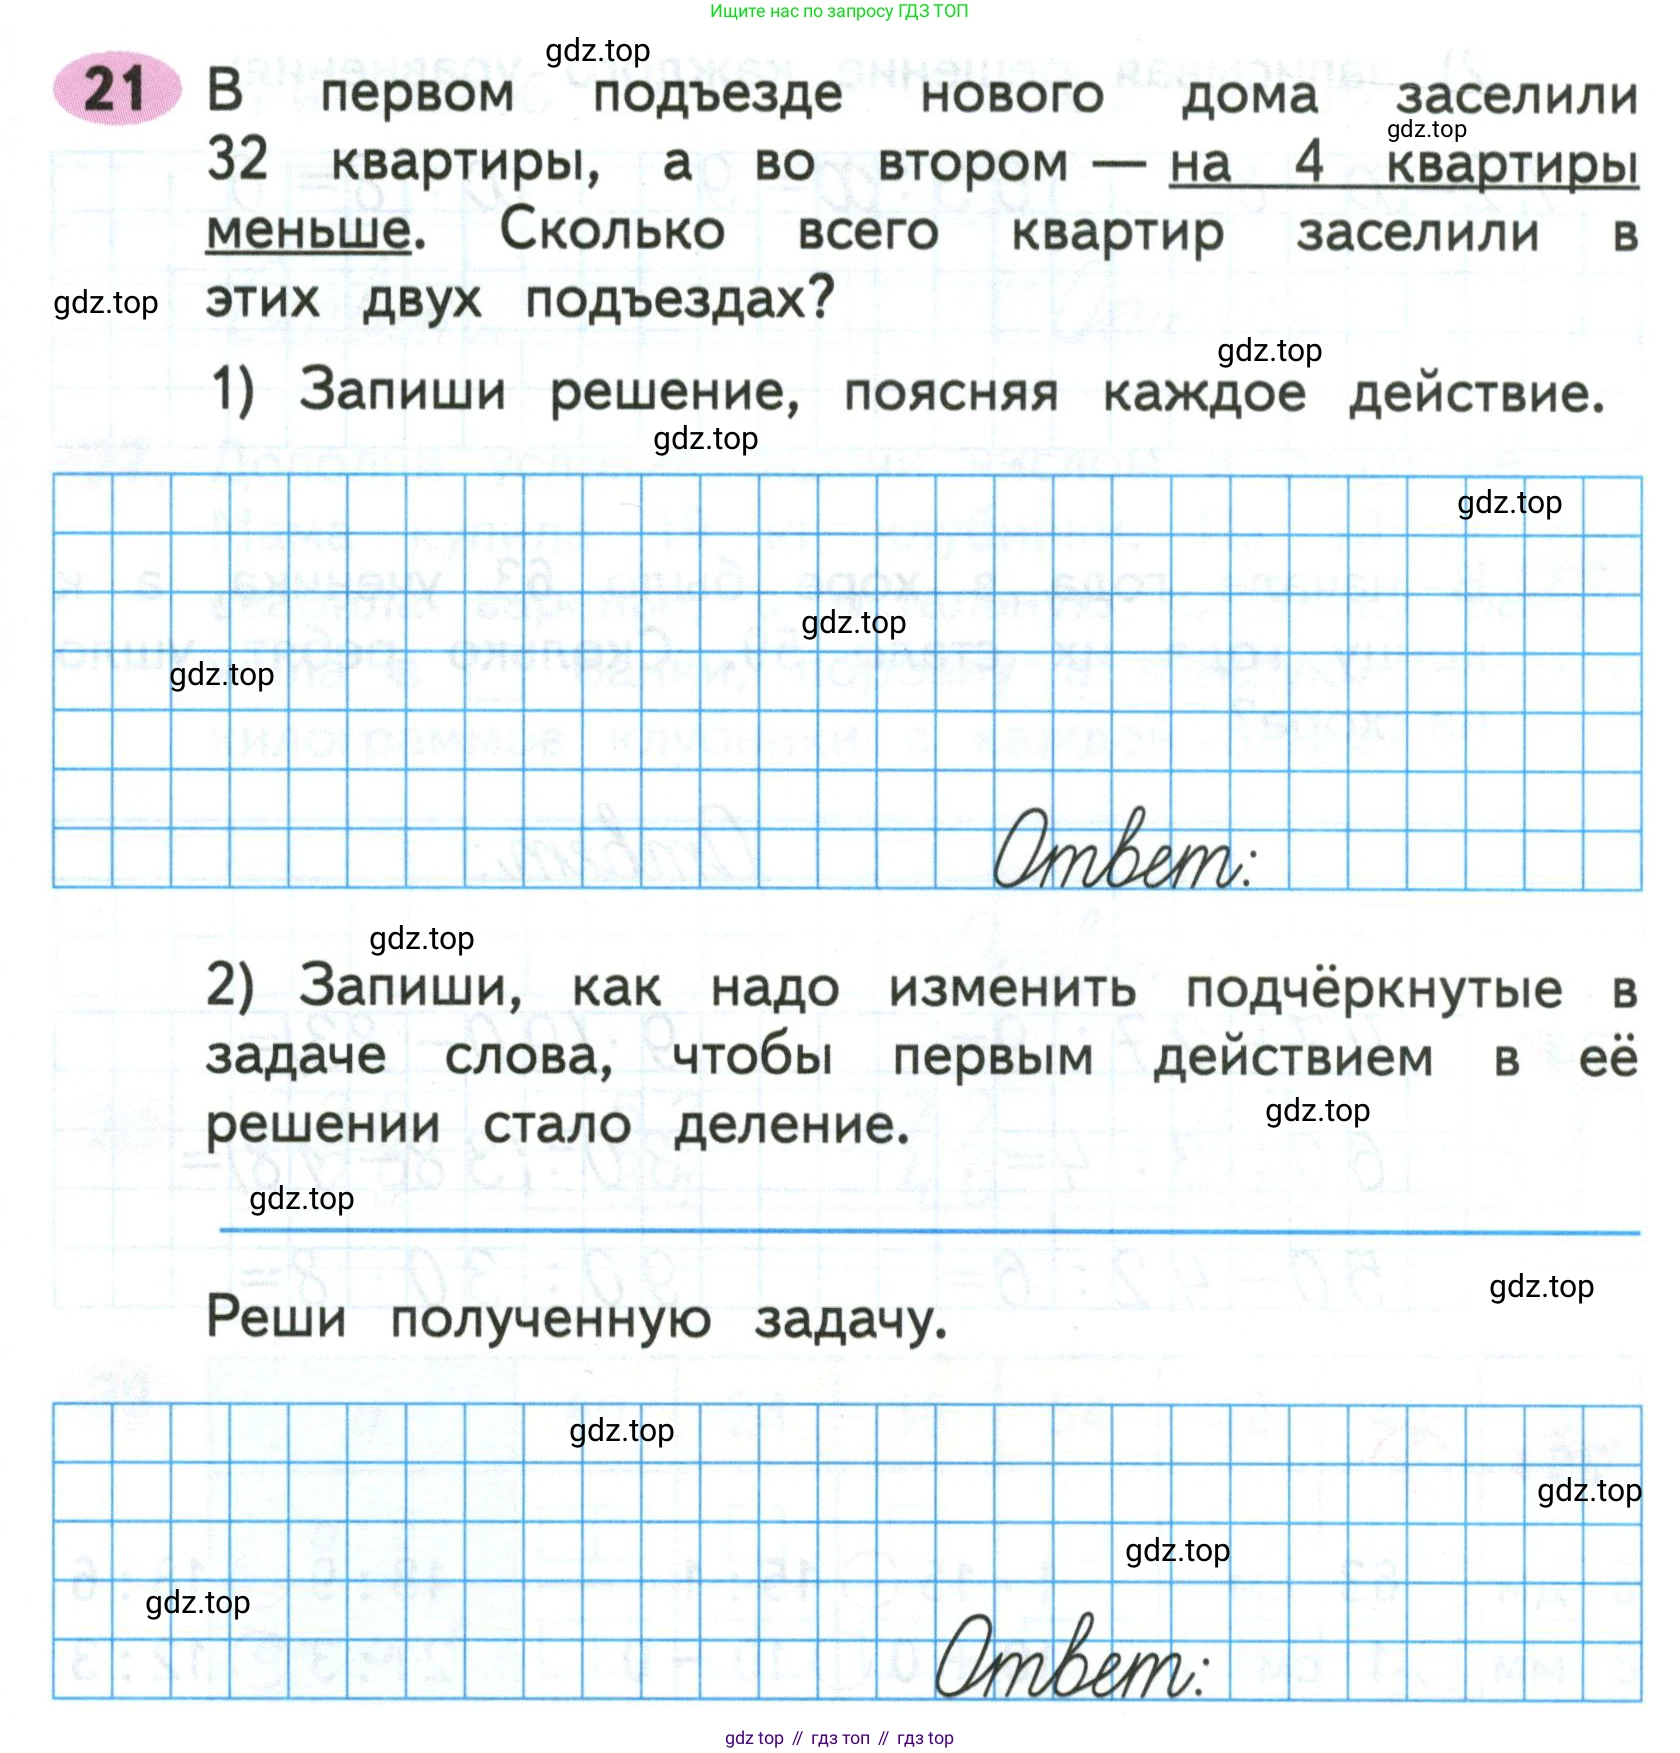 Ищите нас по запросу ГДЗ ТОП
gdz.top
21 В первом подъезде нового дома заселили
gdz.top
32 квартиры, а во втором — на 4 квартиры
меньше. Сколько всего квартир заселили в
этих двух подъездах?
gdz.top
gdz.top
1) Запиши решение, поясняя каждое действие.
gdz.top
gdz.top
gdz.top
gdz.top
Ответ:
gdz.top
2) Запиши, как надо изменить подчёркнутые в
задаче слова, чтобы первым действием в её
решении стало деление.
gdz.top
gdz.top
gdz.top
Реши полученную задачу.
gdz.top
gdz.top
gdz.top
gdz.top
Ответ:
gdz top // гдз топ // gdz top